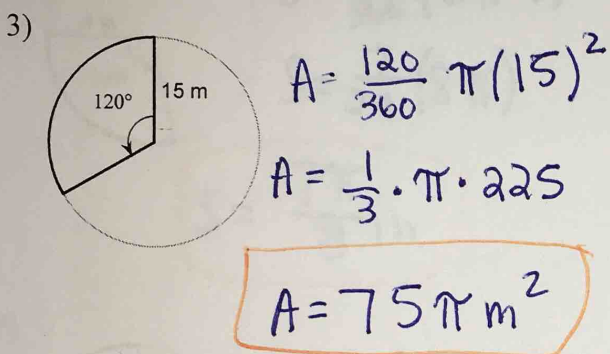 3)
120° 15 m
A = 120/360 π(15)²
A = 1/3 · π · 225
A = 75π m²